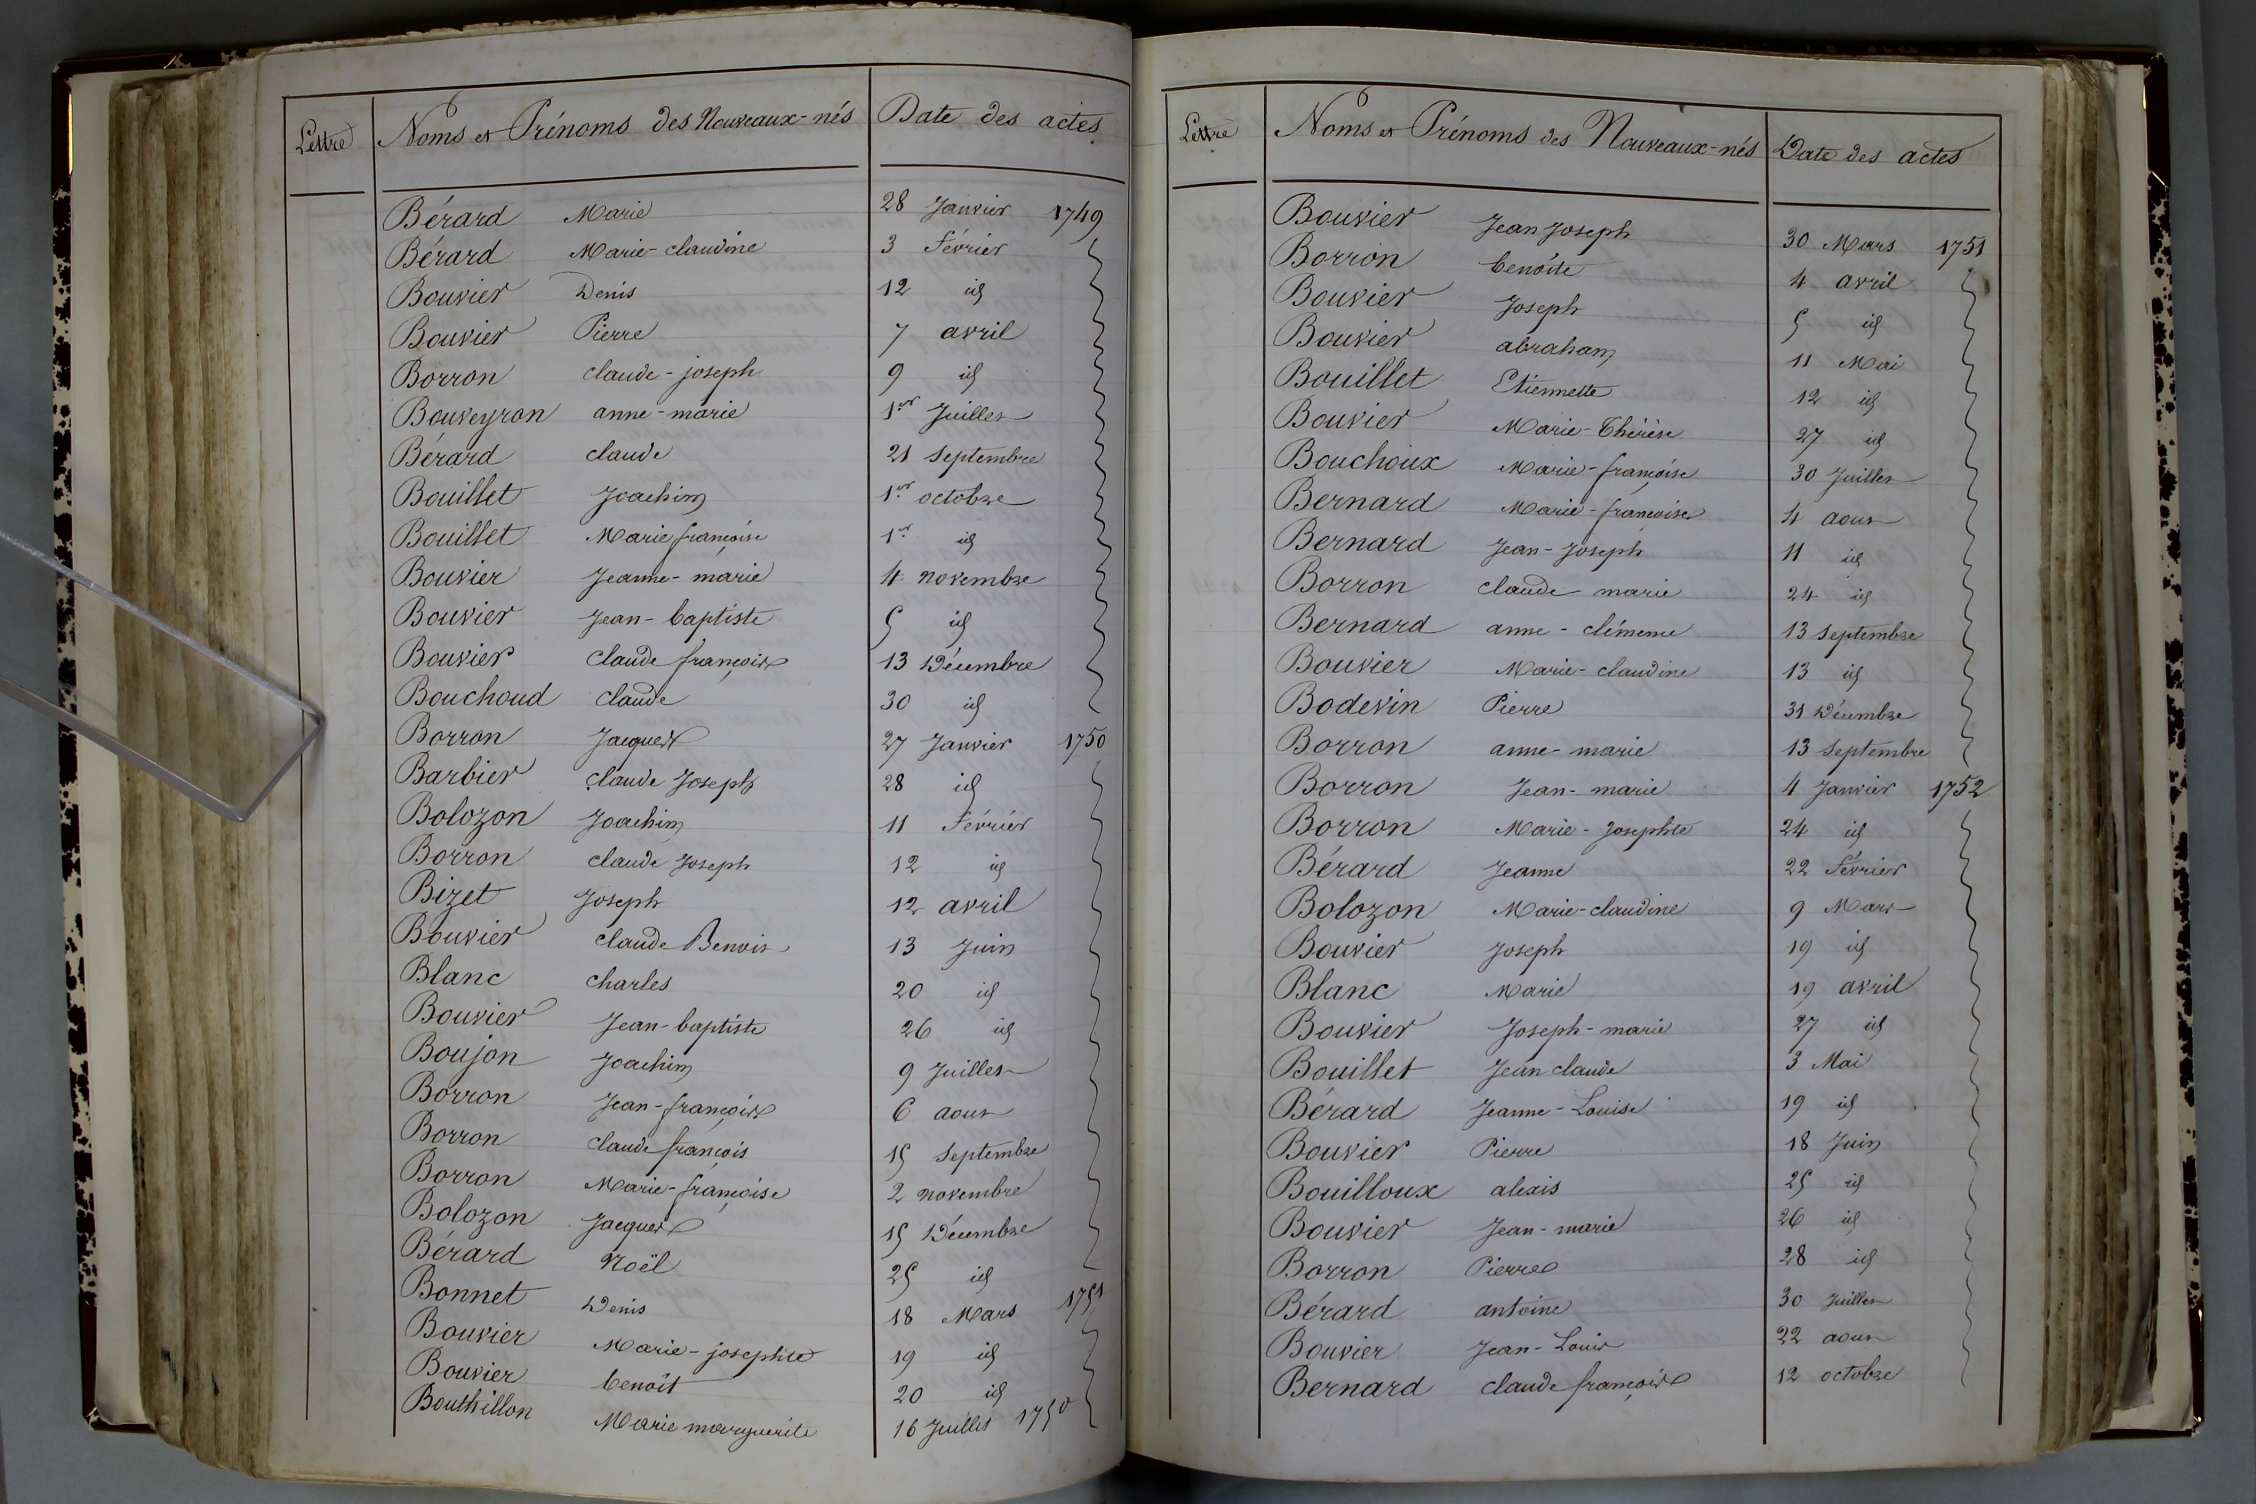 Lettre Noms et Prénoms des Nouveaux-nés Date des actes
Bérard Marie 28 Janvier 1749
Bérard Marie-claudine 3 Février
Bouvier Denis 12 id
Bouvier Pierre 7 avril
Borron claude-joseph 9 id
Bouveyron anne-marie 1er Juillet
Bérard claude 21 septembre
Bouillet Joachim 1er octobre
Bouillet Marie françoise 1er id
Bouvier Jeanne-marie 4 novembre
Bouvier Jean-baptiste 5 id
Bouvier Claude françois 13 Décembre
Bouchoud Claude 30 id
Borron Jacques 27 Janvier 1750
Barbier claude Joseph 28 id
Bolozon Joachim 11 Février
Borron claude Joseph 12 id
Bizet Joseph 12 avril
Bouvier claude Benoit 13 Juin
Blanc charles 20 id
Bouvier Jean-baptiste 26 id
Boujon Joachim 9 Juillet
Borron Jean-françois 6 aout
Borron claude françois 15 septembre
Borron Marie-françoise 2 novembre
Bolozon Jacques 15 Décembre
Bérard Noël 25 id
Bonnet Denis 18 Mars 1751
Bouvier Marie-josephte 19 id
Bouvier benoît 20 id
Bouthillon Marie marguerite 16 Juillet 1750
Lettre Noms et Prénoms des Nouveaux-nés Date des actes
Bouvier Jean Joseph 30 Mars 1751
Borron benoîte 4 avril
Bouvier Joseph 5 id
Bouvier abraham 11 Mai
Bouillet Etiennette 12 id
Bouvier Marie-Thérèse 27 id
Bouchoux Marie-françoise 30 Juillet
Bernard Marie-françoise 4 aout
Bernard Jean-Joseph 11 id
Borron claude marie 24 id
Bernard anne-clémence 13 septembre
Bouvier Marie-claudine 13 id
Bodevin Pierre 31 Décembre
Borron anne-marie 13 septembre
Borron Jean-marie 4 Janvier 1752
Borron Marie-Josephte 24 id
Bérard Jeanne 22 Février
Bolozon Marie-claudine 9 Mars
Bouvier Joseph 19 id
Blanc Marie 19 avril
Bouvier Joseph-marie 27 id
Bouillet Jean claude 3 Mai
Bérard Jeanne-Louise 19 id
Bouvier Pierre 18 Juin
Bouilloux alexis 25 id
Bouvier Jean-marie 26 id
Borron Pierre 28 id
Bérard antoine 30 Juillet
Bouvier Jean-Louis 22 aout
Bernard claude françois 12 octobre